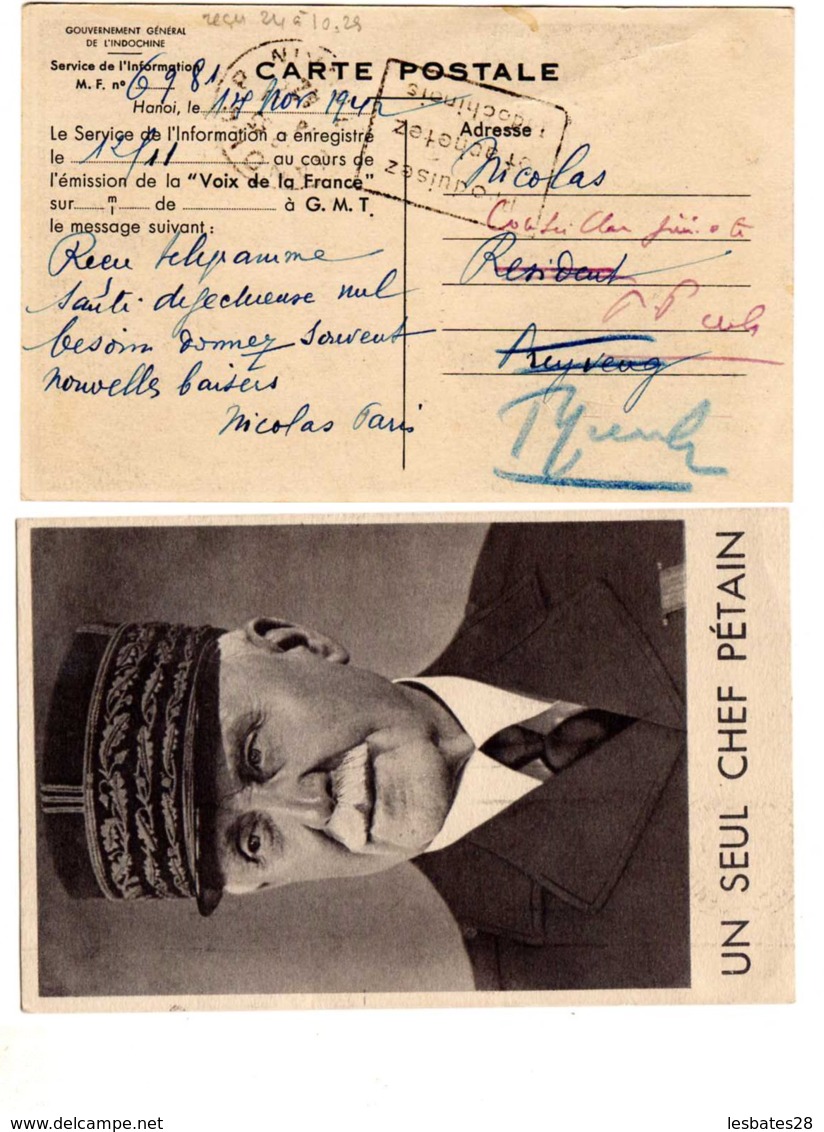 reçu 24 à 10,29
GOUVERNEMENT GÉNÉRAL
DE L'INDOCHINE
Service de l'Information
M. F. nº 6981
CARTE POSTALE
Hanoi, le 14 Nov 1942
Le Service de l'Information a enregistré
le 12/11 au cours de
l'émission de la "Voix de la France"
sur m/l de à G. M. T.
le message suivant :
Reçu telegramme
santé defectueuse nul
besoin donnez souvent
nouvelles baisers
Nicolas Paris
et achetez
Indochinois
Adresse
Nicolas
Resident
Preyveng
UN SEUL CHEF PÉTAIN
lesbates28